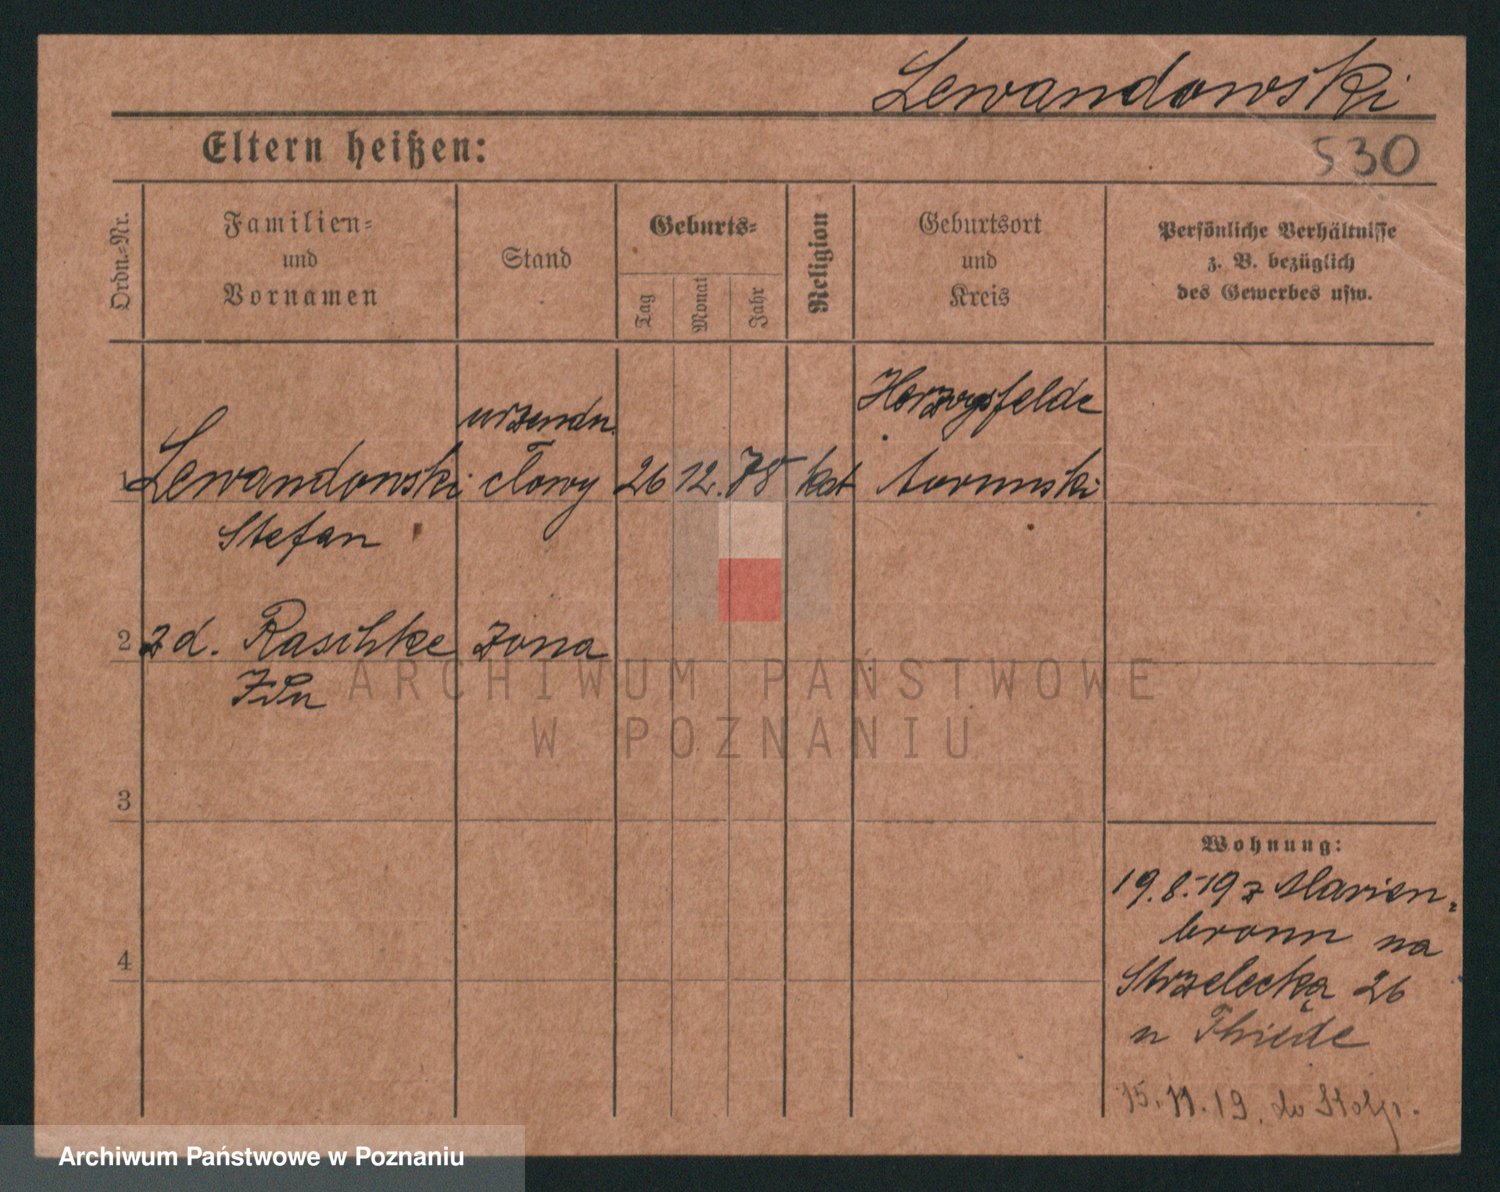 Lewandowski
530
Eltern heißen:
Ordn.-Nr.
Familien-
und
Vornamen
Stand
Geburts-
Tag
Monat
Jahr
Religion
Geburtsort
und
Kreis
Persönliche Verhältnisse
z. B. bezüglich
des Gewerbes usw.
Herzogsfelde
1 Lewandowski 26 12. 78 kat toruński
Stefan
2 zd. Raschke żona
3
4
Wohnung:
19.8.19 z Marien-
bronn na
Strzelecką 26
u Thiede
15.11.19. do Stolp.
ARCHIWUM PAŃSTWOWE
W POZNANIU
Archiwum Państwowe w Poznaniu